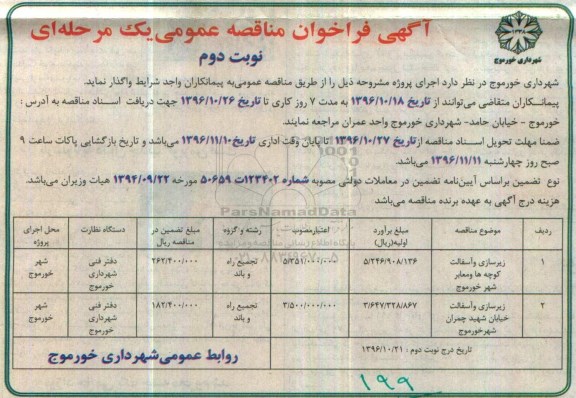 آگهی فراخوان مناقصه عمومی یک مرحله‌ای
نوبت دوم
شهرداری خورموج
شهرداری خورموج در نظر دارد اجرای پروژه مشروحه ذیل را از طریق مناقصه عمومی به پیمانکاران واجد شرایط واگذار نماید.
پیمانکاران متقاضی می‌توانند از تاریخ ۱۳۹۶/۱۰/۱۸ به مدت ۷ روز کاری تا تاریخ ۱۳۹۶/۱۰/۲۶ جهت دریافت اسناد مناقصه به آدرس :
خورموج - خیابان حامد- شهرداری خورموج واحد عمران مراجعه نمایند.
ضمنا مهلت تحویل اسناد مناقصه از تاریخ ۱۳۹۶/۱۰/۲۷ تا پایان وقت اداری تاریخ ۱۳۹۶/۱۱/۱۰ می‌باشد و تاریخ بازگشایی پاکات ساعت ۹
صبح روز چهارشنبه ۱۳۹۶/۱۱/۱۱ می‌باشد.
نوع تضمین براساس آیین‌نامه تضمین در معاملات دولتی مصوبه شماره ۱۲۳۴۰۲ت ۵۰۶۵۹ مورخه ۱۳۹۴/۰۹/۲۲ هیات وزیران می‌باشد.
هزینه درج آگهی به عهده برنده مناقصه می‌باشد
ParsNamadData
ردیف موضوع مناقصه مبلغ برآورد اولیه(ریال) اعتبار مصوب رشته و گروه مبلغ تضمین در مناقصه ریال دستگاه نظارت محل اجرای پروژه
۱ زیرسازی وآسفالت کوچه ها ومعابر شهر خورموج ۵/۲۴۶/۹۰۸/۱۳۶ ۵/۲۵۱/۰۰۰/۰۰۰ تجمیع راه و باند ۲۶۲/۴۰۰/۰۰۰ دفتر فنی شهرداری خورموج شهر خورموج
۲ زیرسازی وآسفالت خیابان شهید چمران شهرخورموج ۳/۶۴۷/۳۲۸/۸۶۷ ۳/۵۰۰/۰۰۰/۰۰۰ تجمیع راه و باند ۱۸۲/۴۰۰/۰۰۰ دفتر فنی شهرداری خورموج شهر خورموج
تاریخ درج نوبت دوم : ۱۳۹۶/۱۰/۲۱
روابط عمومی شهرداری خورموج
۱۹۹